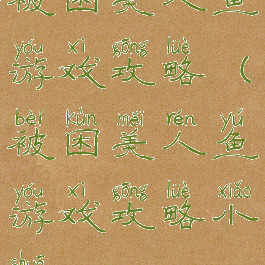 被困美人鱼
yóu xì gōng lüè
游戏攻略（
bèi kùn měi rén yú
被困美人鱼
yóu xì gōng lüè xiǎo
游戏攻略小
shuō